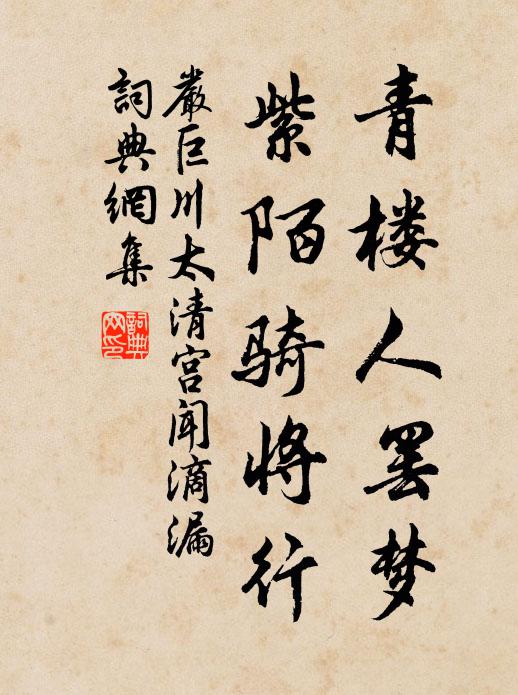 青楼人罢梦
紫陌骑将行
嚴巨川太清宫闻滴漏
詞典網集
詞典网印